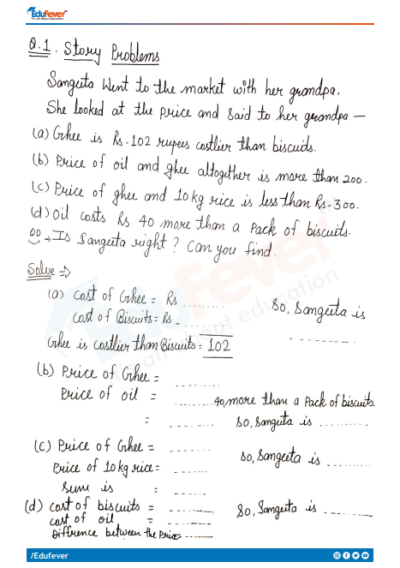 EduFever
Q.1. Story Problems
Sangeeta Went to the market with her grandpa.
She looked at the price and Said to her grandpa —
(a) Ghee is Rs.102 rupees costlier than biscuits.
(b) Price of oil and ghee altogether is more than 200.
(c) Price of ghee and 10kg rice is less than Rs.300.
(d) Oil costs Rs 40 more than a Pack of biscuits.
→ Is Sangeeta right? Can you find.
Solve ⇒
(a) Cost of Ghee = Rs ........
Cost of Biscuits = Rs - ........ So, Sangeeta is
Ghee is costlier than Biscuits = 102 ........
(b) Price of Ghee = ........
Price of oil = ........ 40, more than a Pack of biscuits
= ........ So, Sangeeta is ........
(c) Price of Ghee = ........
Price of 10kg rice = ........ So, Sangeeta is ........
Sum is = ........
(d) Cost of biscuits = ........ So, Sangeeta is ........
Cost of oil = ........
Difference between the Price = ........
/Edufever